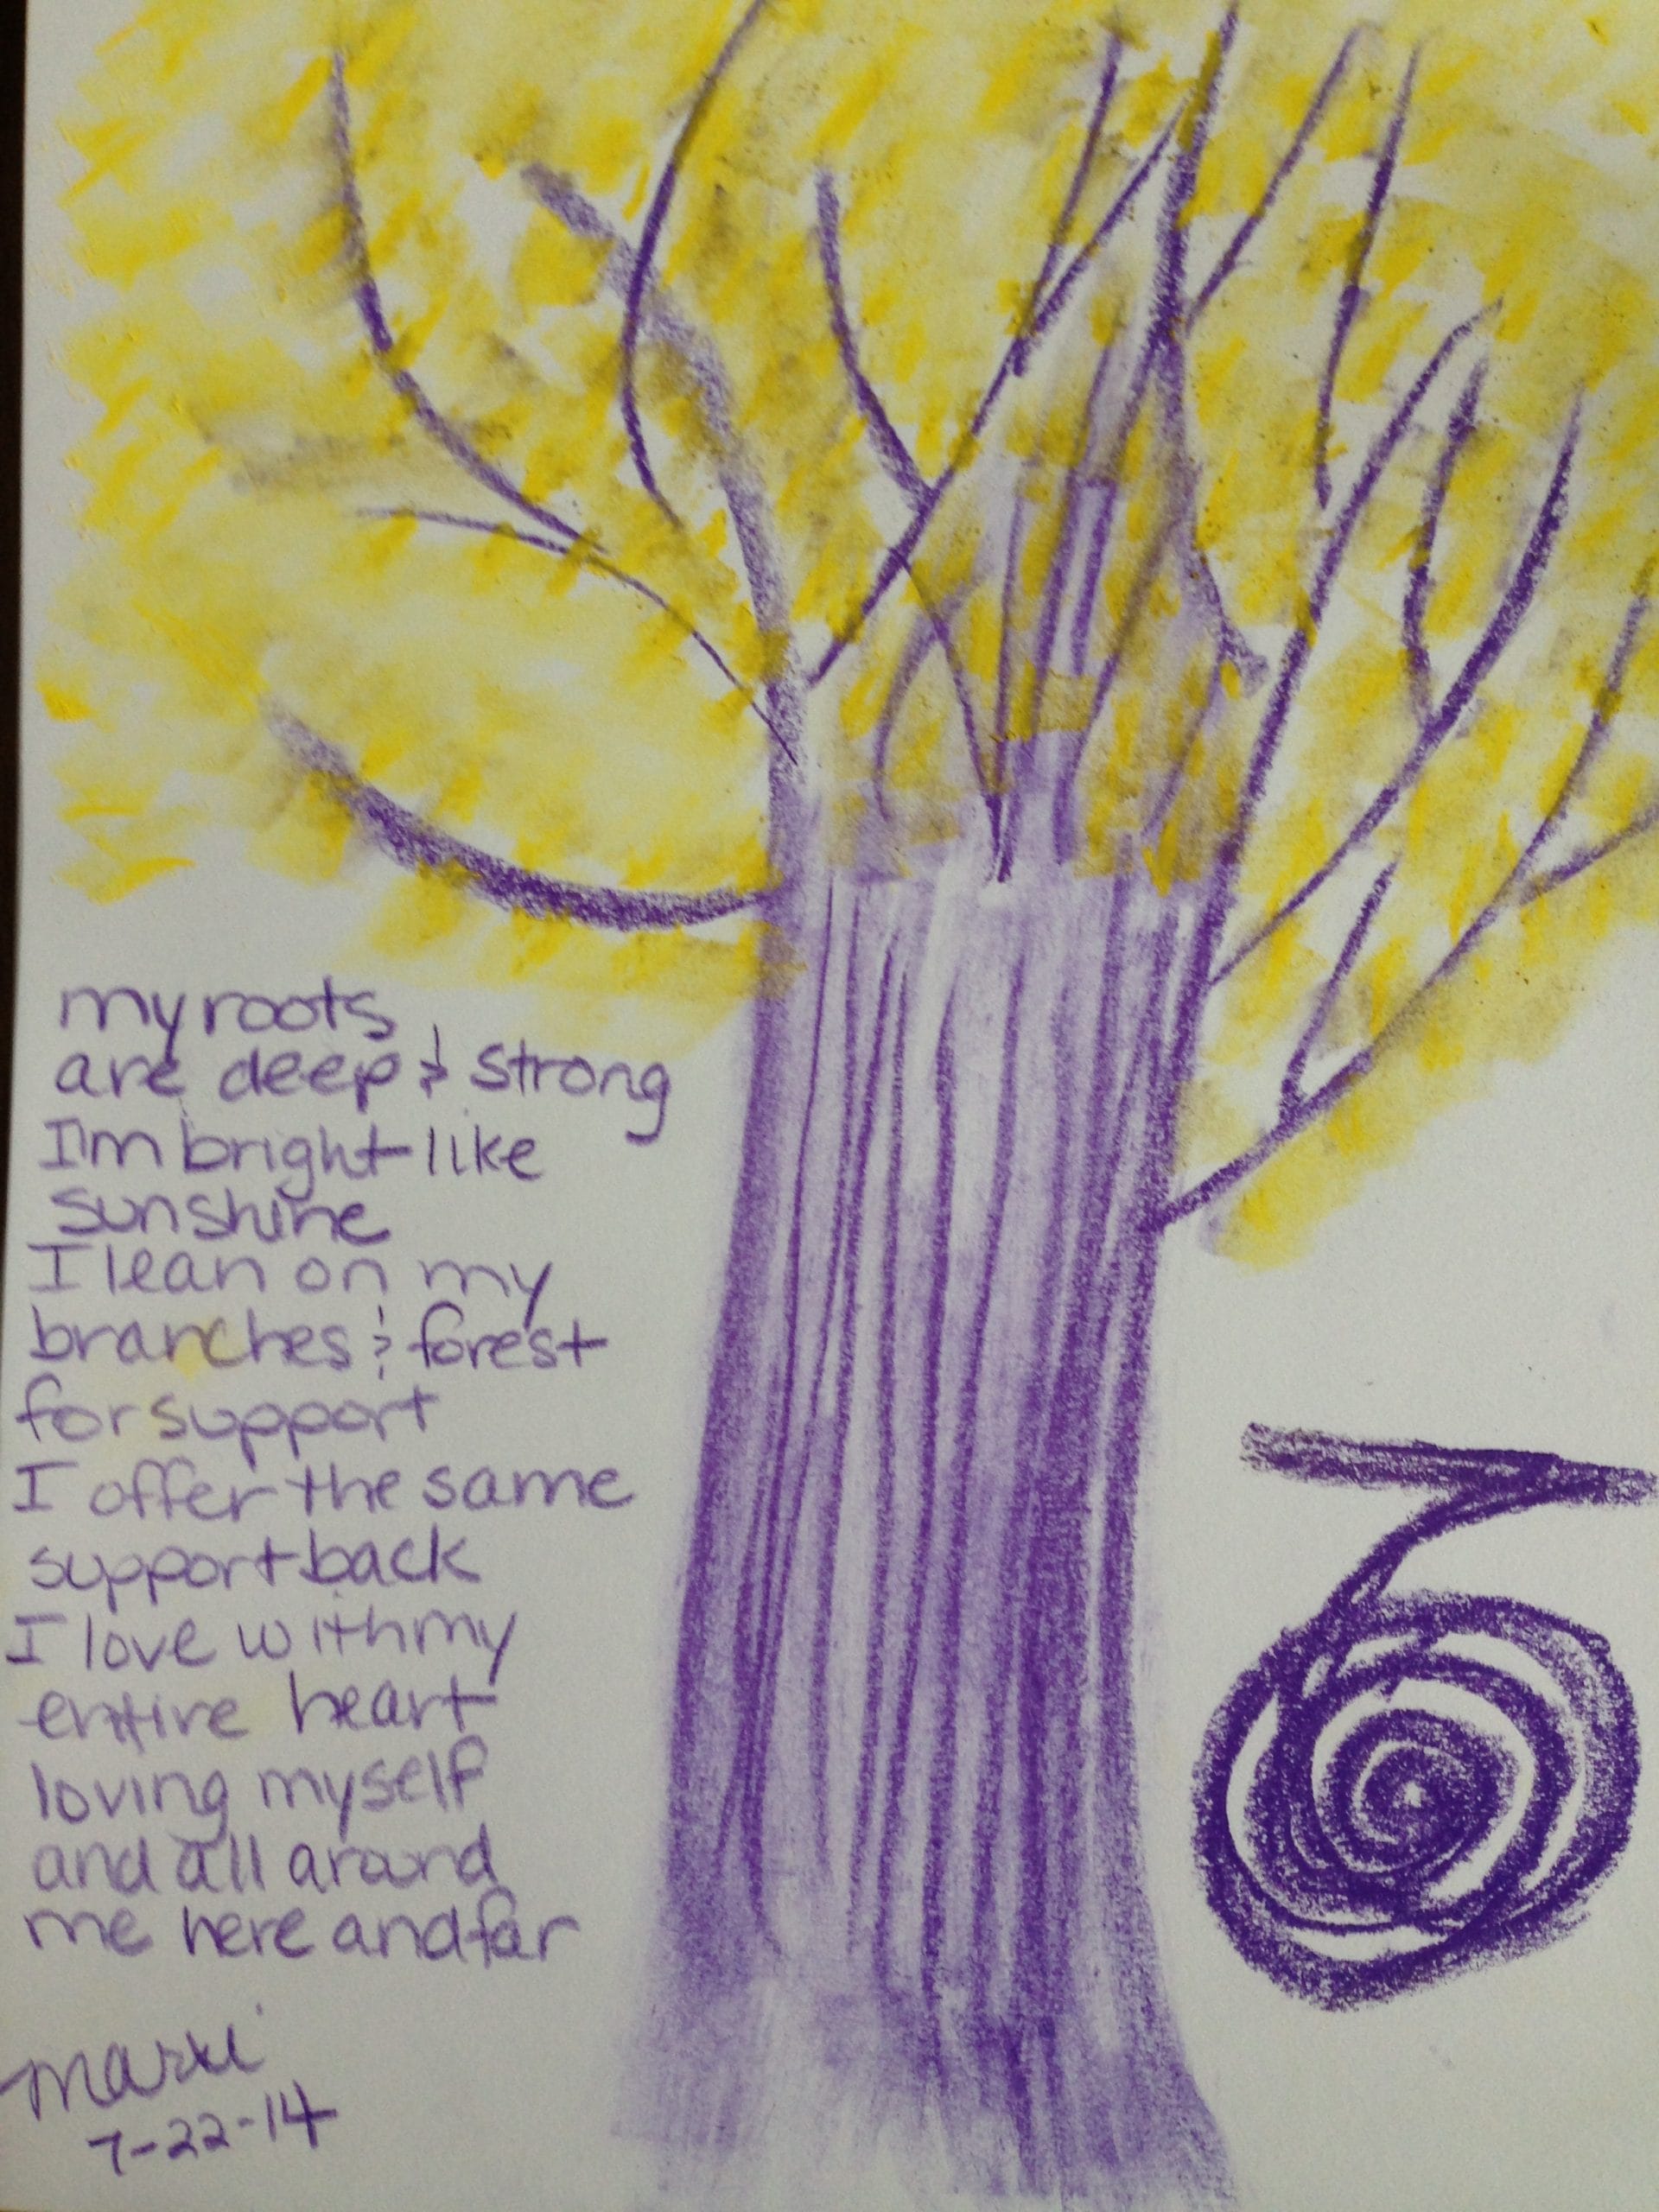 my roots
are deep & strong
I'm bright like
sunshine
I lean on my
branches & forest
for support
I offer the same
support back
I love with my
entire heart
loving myself
and all around
me here and far
7-22-14